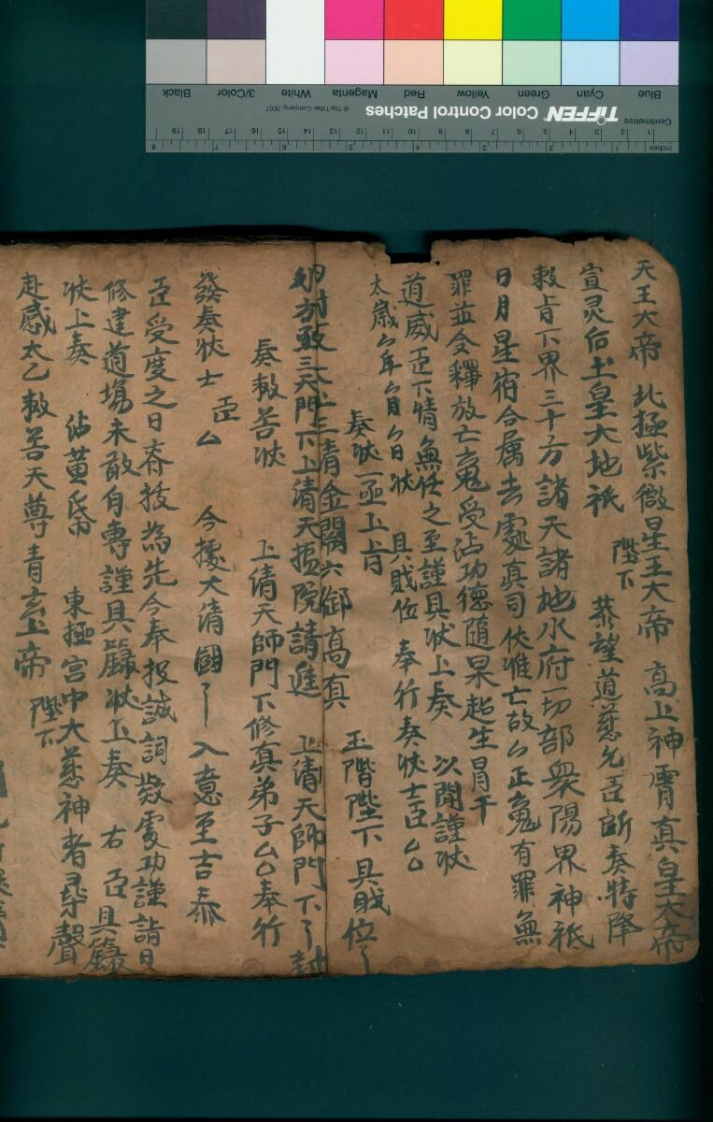 天王大帝 北極紫微星主大帝 高上神霄真皇大帝
宣灵后土皇大地祇 陛下 恭望道慈允臣所奏特降
敕旨下界三十六方諸天諸地水府一切部衆陽界神祇
日月星宿合属去處真司 亡故厶正䰟有罪無
罪並令釋放亡䰟受沾功德隨果超生冒干
道威臣下情無任之至謹具狀上奏 以聞謹狀
太歲厶年厶月厶日狀 具賎位 奉行奏狀士臣厶厶
奏狀一函上旨
三清金闕六御高真 玉階陛下具賎位
三天門下上清天樞院請進 上清天師門下 封
奏救苦狀 上清天師門下修真弟子厶厶奉行
發奏狀士臣厶 今據大清國 入意至吉奈
臣受度之日 為先今奉投誠詞 功謹詣日
修建道場未敢自專謹具籙狀上奏 右臣具籙
狀上奏 東極宮中大慈神者尋聲
赴感太乙救苦天尊青玄上帝 陛下
TIFFEN Color Control Patches
© The Tiffen Company, 2007
Blue Cyan Green Yellow Red Magenta White 3/Color Black
Centimetres 1 2 3 4 5 6 7 8 9 10 11 12 13 14 15 16 17 18 19
Inches 1 2 3 4 5 6 7 8